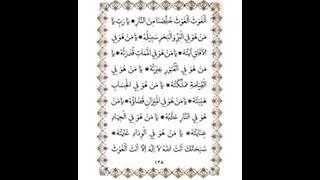 اَلْغَوْثَ الْغَوْثَ خَلِّصْنَا مِنَ النَّارِ ❋ يَا رَبِّ يَا
مَنْ هُوَ فِي الْبَرِّ وَالْبَحْرِ سَبِيلُهُ ❋ يَا مَنْ هُوَ فِي
الْآفَاقِ آيَتُهُ ❋ يَا مَنْ هُوَ فِي الْمَمَاتِ قُدْرَتُهُ ❋ يَا
مَنْ هُوَ فِي الْقُبُورِ عِبْرَتُهُ ❋ يَا مَنْ هُوَ فِي
الْقِيَامَةِ مَمْلَكَتُهُ ❋ يَا مَنْ هُوَ فِي الْحِسَابِ
هَيْبَتُهُ ❋ يَا مَنْ هُوَ فِي الْمِيزَانِ قَضَاؤُهُ ❋ يَا مَنْ
هُوَ فِي النَّارِ عَذَابُهُ ❋ يَا مَنْ هُوَ فِي
عِنَايَتُهُ ❋ يَا مَنْ هُوَ فِي
سُبْحَانَكَ أَنْتَ اللهُ لَا إِلَهَ إِلَّا أَنْتَ الْغَوْثَ
١٢٨